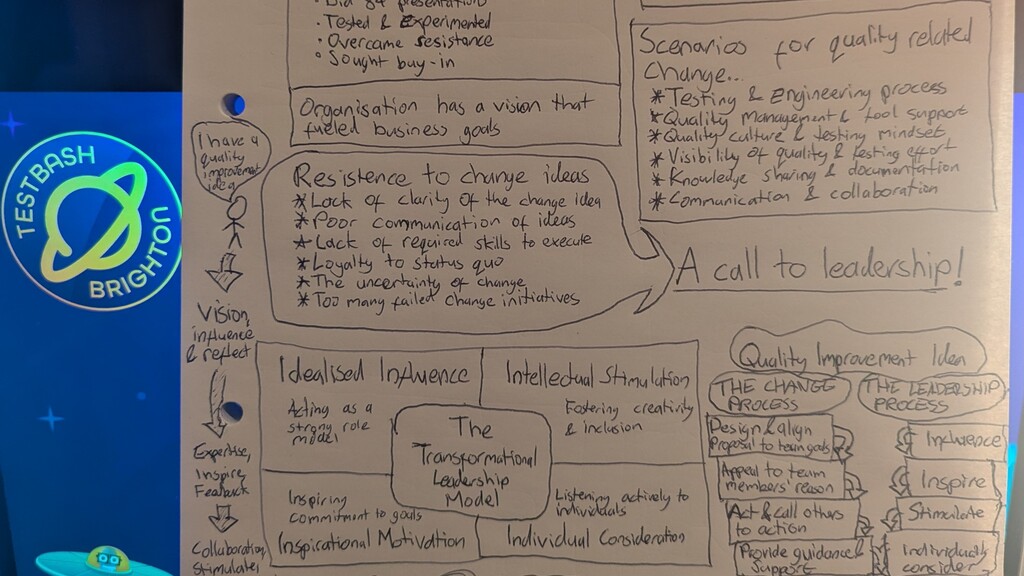 TESTBASH
BRIGHTON
• Tested & Experimented
• Overcame resistance
• Sought buy-in
Organisation has a vision that
fueled business goals
Scenarios for quality related
change...
* Testing & Engineering process
* Quality management & tool support
* Quality culture & testing mindset
* Visibility of quality & testing effort
* Knowledge sharing & documentation
* Communication & collaboration
I have a
quality
improvement
idea
Resistence to change ideas
* Lack of clarity of the change idea
* Poor communication of ideas
* Lack of required skills to execute
* Loyalty to status quo
* The uncertainty of change
* Too many failed change initiatives
A call to leadership!
Vision,
influence
& reflect
Expertise,
Inspire
Feedback
Collaboration,
Stimulate
Idealised Influence
Acting as a
strong role
model
Intellectual Stimulation
Fostering creativity
& inclusion
The
Transformational
Leadership
Model
Inspiring
commitment to goals
Inspirational Motivation
Listening actively to
individuals
Individual Consideration
Quality Improvement Idea
THE CHANGE
PROCESS
Design & align
proposal to team goals
Appeal to team
members' reason
Act & call others
to action
Provide guidance &
support
THE LEADERSHIP
PROCESS
Influence
Inspire
Stimulate
Individually
consider